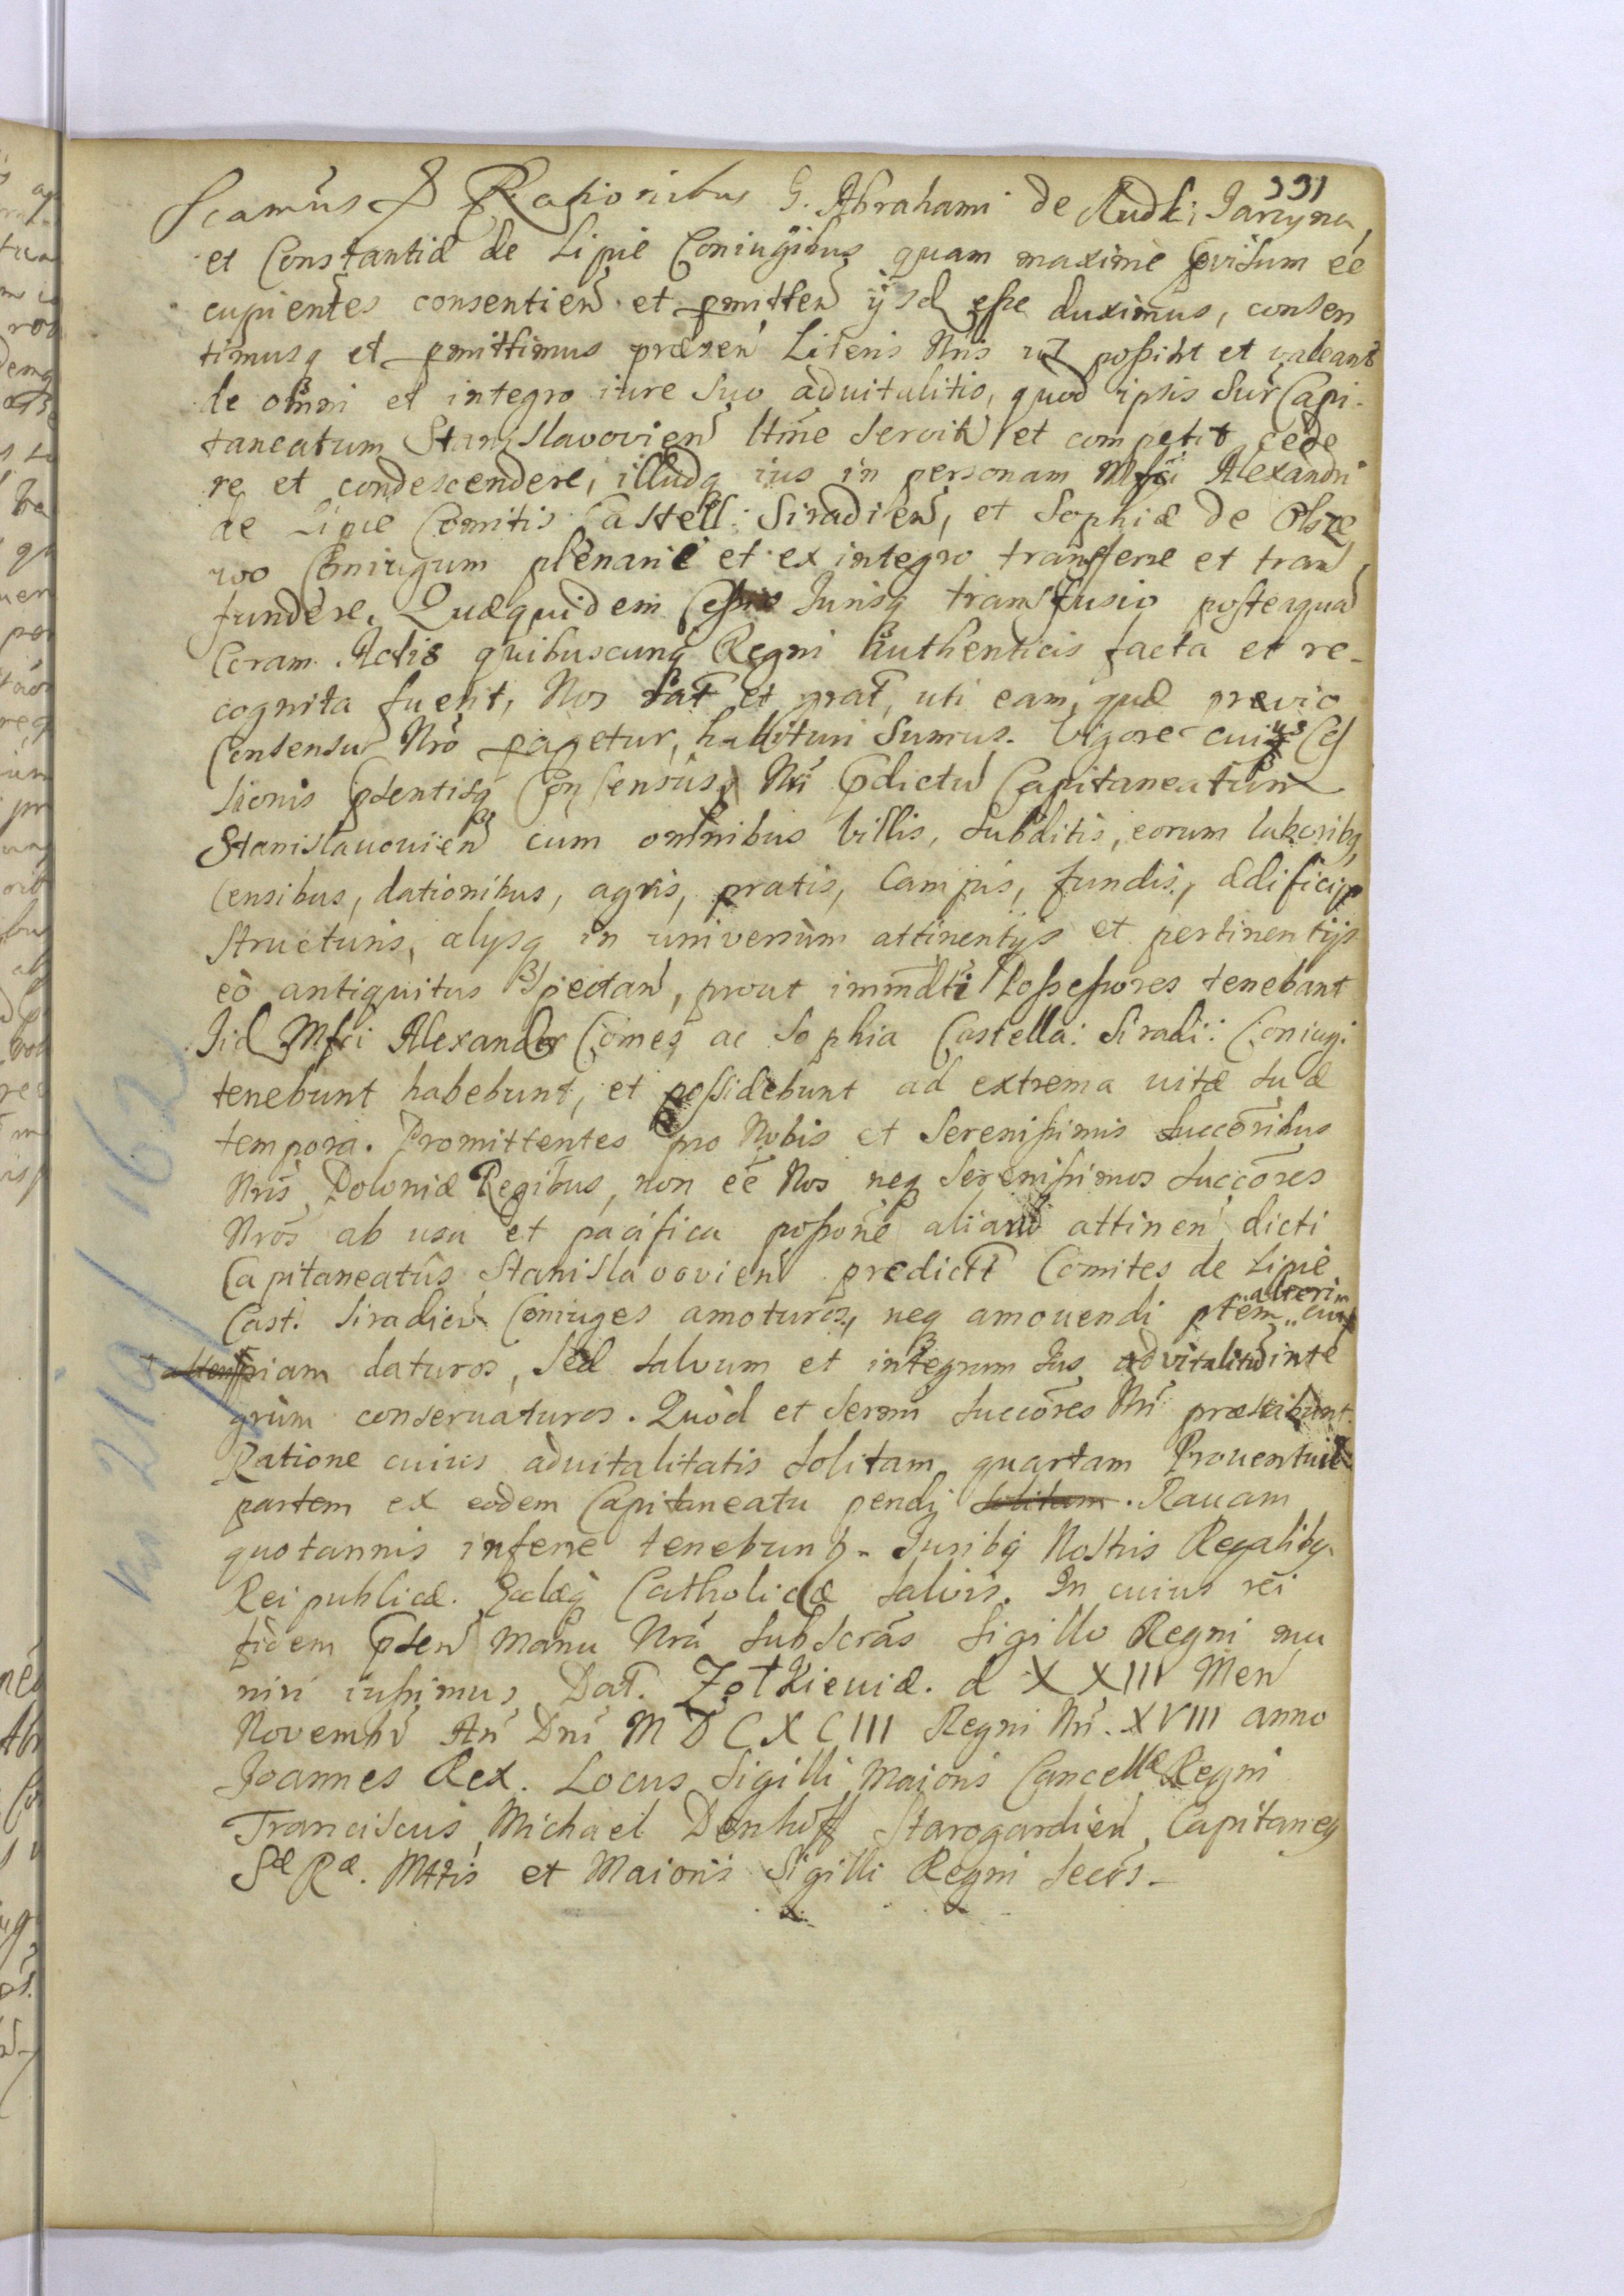 331
scamus Rationibus G. Abrahami de Rudki Jarzyna,
et Constantiæ de Lipie Coniugibus quam maxime pvisum ée
cupientes consentień et pmitteń ijsd esse duximus, consen
timusq et pmittimus præseń Literis Nris ut possint et valeant
de omni et integro iure suo aduitalitio, quod ipsis sur Capi-
taneatum Stanyslavovień ltme servit et competit cede
re et condescendere, illudq ius in personam Mfci Alexandri
de Lipie Comitis Castell: Siradień, et Sophiæ de Olsze
wo Coniugum plenarie et ex integro transferre et tran
fundere. Quæquidem Cessio Jurisq transfusio postquā
Coram Actis quibuscunq Regni Authenticis facta et re-
cognita fuerit, Nos rat et grat, uti eam, quæ prævio
Consensu Nrō pagetur, habituri sumus. Vigore cuius Ces
sionis psentisq Consensus Nri pdictū Capitaneatum
Stanislauouień cum omnibus Villis, subditis, eorum laboribq
censibus, dationibus, agris, pratis, Campis, fundis, ædificijs
structuris, alysq in universum attinentijs et pertinentijs
eò antiquitus spectań, prout immdti Possessores tenebant
Jid Mfci Alexander Comes ac Sophia Castella: Siradi: Coniug:
tenebunt habebunt, et possidebunt ad extrema uitæ suæ
tempora. Promittentes pro Nobis et Serenissimis succōribus
Nris Poloniæ Regibus, non ée Nos neq Serenissimos succōres
Nrōs ab usu et pacifica possōne aliarū attineń dicti
Capitaneatûs Stanislavovień predictt Comites de Lipie
Cast. Siradień Coniuges amoturos, neq amouendi ptem alteri cui
piam daturos, sed salvum et integrum Jus advitalitū inte
grum conseruaturos. Quòd et Serem succōres Nri præstabunt.
Ratione cuius aduitalitatis solitam quartam Prouentuū
partem ex eodem Capitaneatu pendi solitam. Rauam
quotannis inferre tenebunt. Juribq Nostris Regalibq
Reipublicæ. Eccleq Catholicæ saluis. In cuius rei
fidem pseń manu Nrā subscrās sigillo Regni mu
niri iussimus Dat. Zołkieuiæ. d XXIII Meń
Novembr Ań Dni MDCXCIII Regni Nri. XVIII anno
Joannes Rex. Locus Sigilli Maioris Cancellæ Regni
Franciscus Michael Denhoff Starogardień Capitaneq
Sæ Ræ. Mttis et Maioris Sigilli Regni Secrs.